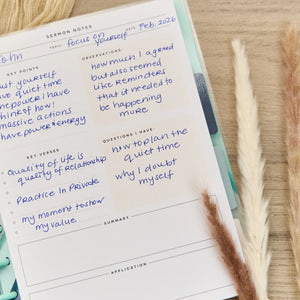 SERMON NOTES
John
TOPIC focus on yourself
Feb, 2026
KEY POINTS
trust yourself
quiet time
the power I have
think of how I
massive actions
have power & energy
OBSERVATIONS:
how much I agreed
but also seemed
like reminders
that it needed to
be happening
more
KEY VERSES
Quality of life is
quality of relationship
Practice in Private
my moment to show
my value
QUESTIONS I HAVE:
how to plan the
quiet time
why I doubt
myself
SUMMARY
APPLICATION